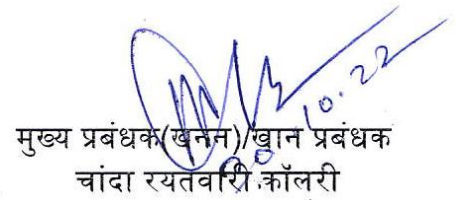 20.10.22
मुख्य प्रबंधक(खनन)/खान प्रबंधक
चांदा रयतवारी कॉलरी